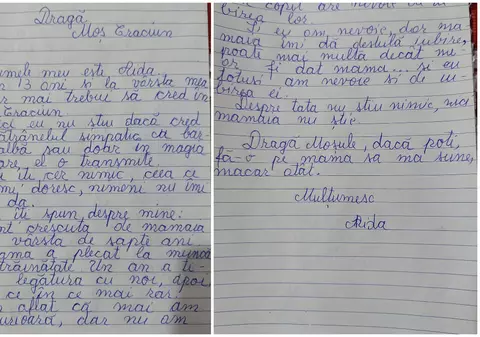 Dragă
Moș Crăciun
numele meu este Aida.
13 ani și la vârsta mea
mai trebui să cred în
Crăciun
eu nu știu dacă cred
bătrânelul simpatic cu bar
albă sau doar în magia
care el o transmite.
îți cer nimic, ceea ce
îmi doresc, nimeni nu îmi
da.
îți spun despre mine:
crescută de mamaia
vârsta de șapte ani
mama a plecat la muncă
străinătate Un an a ți-
legătura cu noi, apoi
ce în ce mai rar.
aflat că mai am
surioară, dar nu am
copil are nevoie
birea lor.
Și eu am nevoie, dar ma
maia îmi dă destulă iubire,
poate mai multă decât
Ți dat mama... și eu
totuși am nevoie și de iu-
birea ei.
Despre tata nu știu nimic, nici
mamaia nu știe.
Dragă Moșule, dacă poți,
fă-o pe mama să mă sune,
măcar atât.
Mulțumesc
Aida